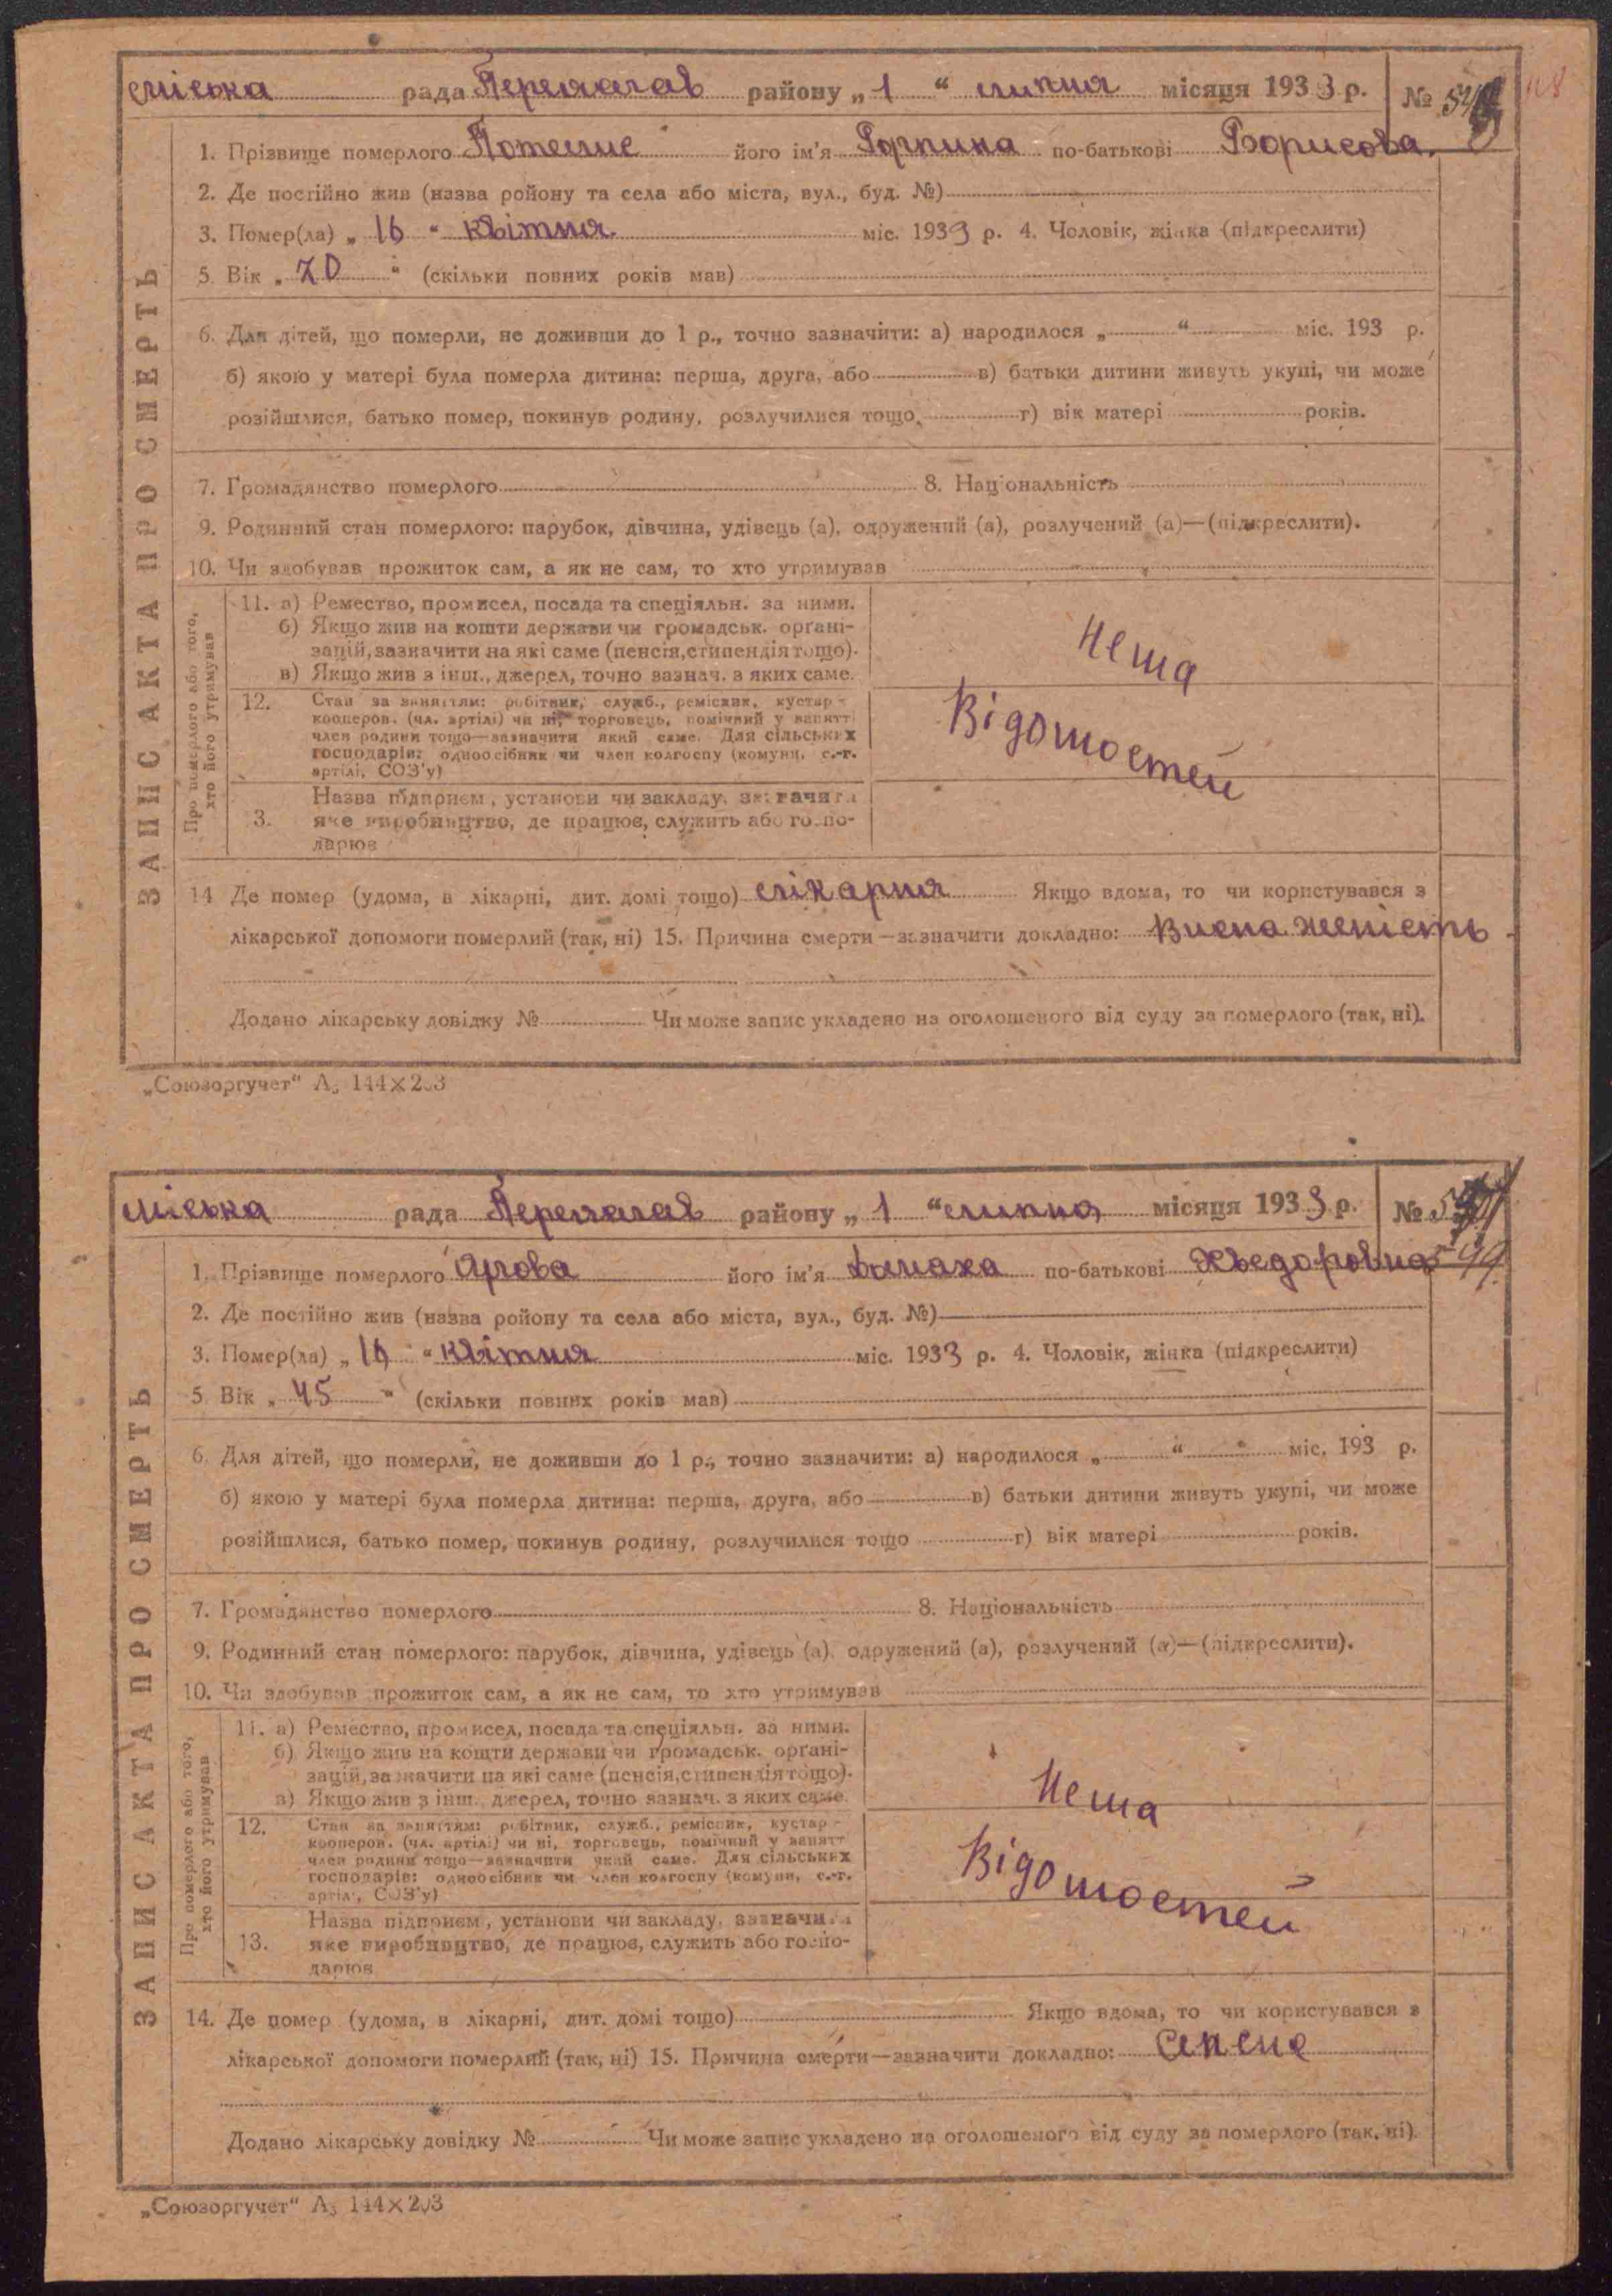 міська рада Переяслав району „ 1 “ липня місяця 1933 р. №
1. Прізвище померлого його ім'я Горпина по-батькові Борисова.
2. Де постійно жив (назва ройону та села або міста, вул., буд. №)
3. Помер(ла) „ 16 “ квітня міс. 1933 р. 4. Чоловік, жінка (підкреслити)
5. Вік „ 70 “ (скільки повних років мав)
6. Для дітей, що померли, не доживши до 1 р., точно зазначити: а) народилося „ “ міс. 193 р.
б) якою у матері була померла дитина: перша, друга, або в) батьки дитини живуть укупі, чи може
розійшлися, батько помер, покинув родину, розлучилися тощо, г) вік матері років.
7. Громадянство померлого 8. Національність
9. Родинний стан померлого: парубок, дівчина, удівець (а), одружений (а), розлучений (а)—(підкреслити).
10. Чи здобував прожиток сам, а як не сам, то хто утримував
ЗАПИС АКТА ПРО СМЕРТЬ
Про померлого або того,
хто його утримував
11. а) Ремество, промисел, посада та спеціяльн. за ними.
б) Якщо жив на кошти держави чи громадськ. органі-
зацій, зазначити на які саме (пенсія, стипендія тощо).
в) Якщо жив з інш., джерел, точно зазнач. з яких саме.
12. Стан за заняттям: робітник, служб., ремісник, кустар -
кооперов. (чл. артілі) чи ні, торговець, помічний у занятт
член родини тощо—зазначити який саме. Для сільських
господарів: одноосібник чи член колгоспу (комуни, с.-г.
артілі, СОЗ'у)
Назва підприєм., установи чи закладу, зазначити
3. яке виробництво, де працює, служить або госпо-
дарює
Нема
Відомостей
14 Де помер (удома, в лікарні, дит. домі тощо) лікарня Якщо вдома, то чи користувався з
лікарської допомоги померлий (так, ні) 15. Причина смерти—зазначити докладно:
Додано лікарську довідку № Чи може запис укладено на оголошеного від суду за померлого (так, ні).
„Союзоргучет“ А5 144×203
міська рада Переяслав району „ 1 “ липня місяця 1933 р. №
1. Прізвище померлого його ім'я по-батькові Хведоровна 549
2. Де постійно жив (назва ройону та села або міста, вул., буд. №)
3. Помер(ла) „ 16 “ квітня міс. 1933 р. 4. Чоловік, жінка (підкреслити)
5 Вік „ 45 “ (скільки повних років мав)
6. Для дітей, що померли, не доживши до 1 р., точно зазначити: а) народилося „ “ міс. 193 р.
б) якою у матері була померла дитина: перша, друга, або в) батьки дитини живуть укупі, чи може
розійшлися, батько помер, покинув родину, розлучилися тощо г) вік матері років.
7. Громадянство померлого 8. Національність
9. Родинний стан померлого: парубок, дівчина, удівець (а), одружений (а), розлучений (а)—(підкреслити).
10. Чи здобував прожиток сам, а як не сам, то хто утримував
ЗАПИС АКТА ПРО СМЕРТЬ
Про померлого або того,
хто його утримував
11. а) Ремество, промисел, посада та спеціяльн. за ними.
б) Якщо жив на кошти держави чи громадськ. органі-
зацій, зазначити на які саме (пенсія, стипендія тощо).
в) Якщо жив з інш., джерел, точно зазнач. з яких саме.
12. Стан за заняттям: робітник, служб., ремісник, кустар -
кооперов. (чл. артілі) чи ні, торговець, помічний у занятт
член родини тощо—зазначити який саме. Для сільських
господарів: одноосібник чи член колгоспу (комуни, с.-г.
артілі, СОЗ'у)
Назва підприєм., установи чи закладу, зазначити
13. яке виробництво, де працює, служить або госпо-
дарює
Нема
Відомостей
14. Де помер (удома, в лікарні, дит. домі тощо) Якщо вдома, то чи користувався з
лікарської допомоги померлий (так, ні) 15. Причина смерти—зазначити докладно:
Додано лікарську довідку № Чи може запис укладено на оголошеного від суду за померлого (так, ні).
„Союзоргучет“ А5 144×203